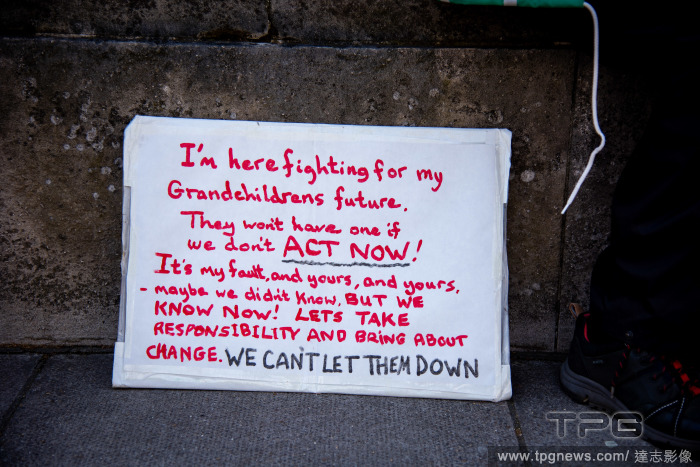 I'm here fighting for my
Grandchildrens future.
They won't have one if
we don't ACT NOW!
It's my fault, and yours, and yours,
- maybe we didn't know, BUT WE
KNOW NOW! LETS TAKE
RESPONSIBILITY AND BRING ABOUT
CHANGE. WE CAN'T LET THEM DOWN
TPG
www.tpgnews.com/ 達志影像